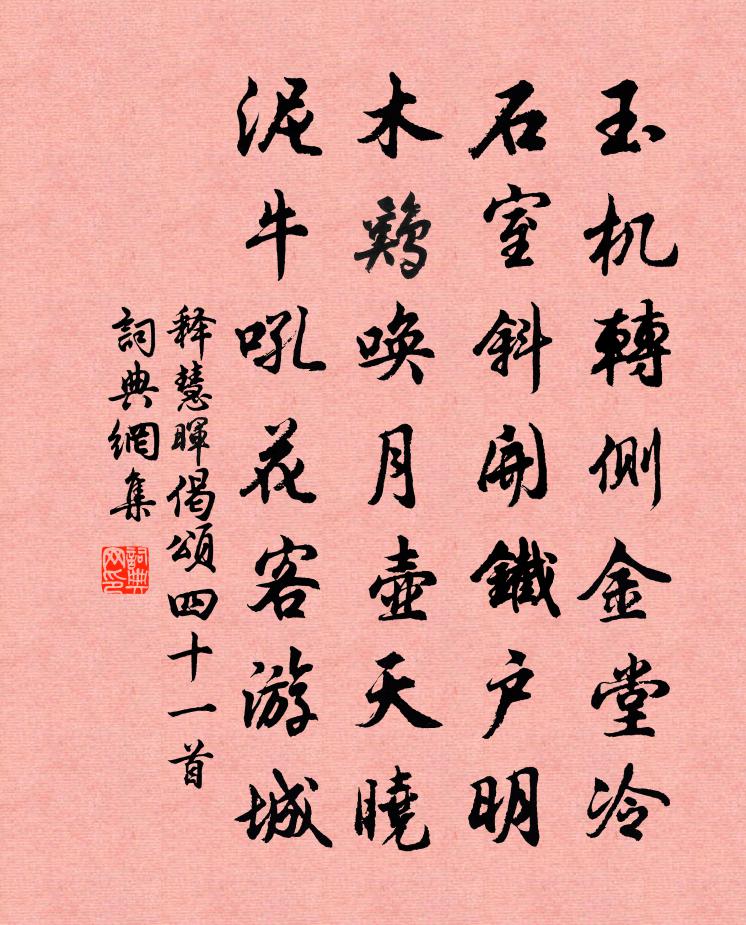 玉机轉側金堂冷
石室斜開鐵户明
木鷄唤月壺天曉
泥牛吼花客游城
释慧暉偈頌四十一首
詞典網集
詞典网印